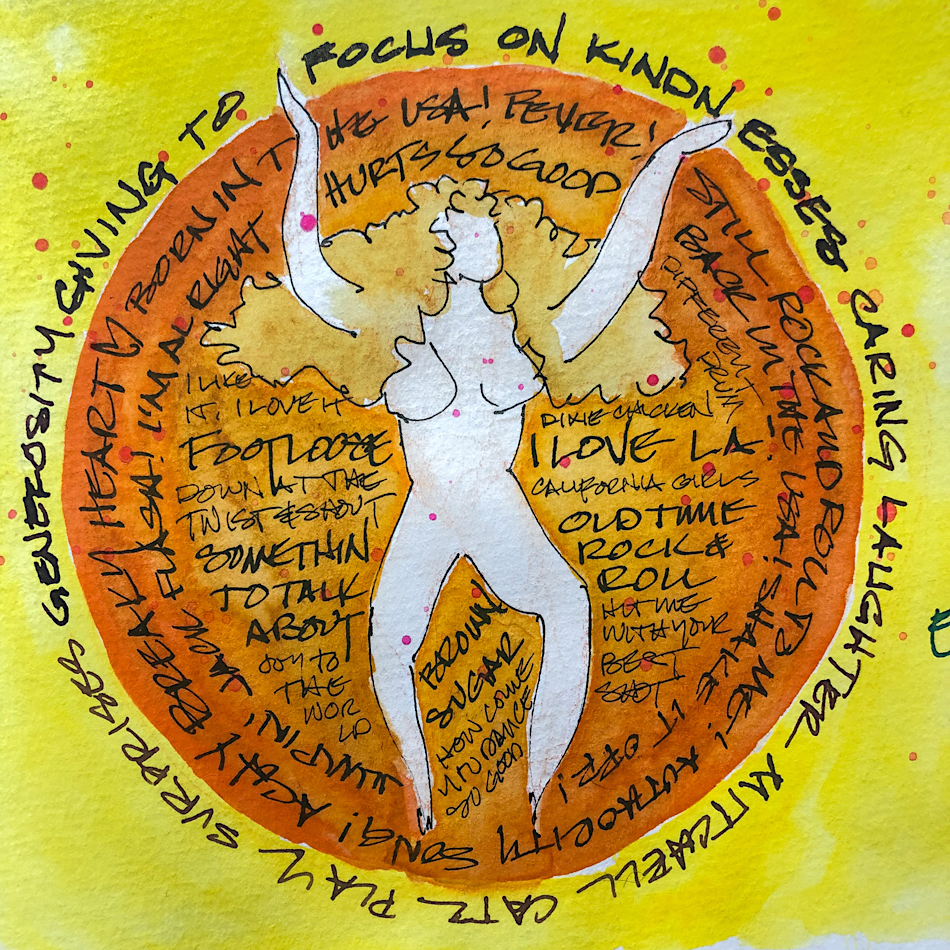 FOCUS ON KINDNESSES CARING LAUGHTER MITCHELL CATZ PLAY SURPRISES GENEROSITY GIVING TO
ACHY BREAKY HEART BORN IN THE USA! FEVER!
STILL ROCK AND ROLL TO ME! AUTHORITY SONG!
JUMPIN' JACK FLASH! I'M ALRIGHT
HURTS SO GOOD
BACK IN THE USA! SHAKE IT OFF!
DIFFERENT DRUM
I LIKE
IT, I LOVE IT
FOOTLOOSE
DOWN AT THE
TWIST & SHOUT
SOMETHIN'
TO TALK
ABOUT
JOY TO
THE
WOR
LD
DIXIE CHICKEN
I LOVE LA
CALIFORNIA GIRLS
OLD TIME
ROCK &
ROLL
HIT ME
WITH YOUR
BEST
SHOT
BROWN
SUGAR
HOW COME
YOU DANCE
SO GOOD